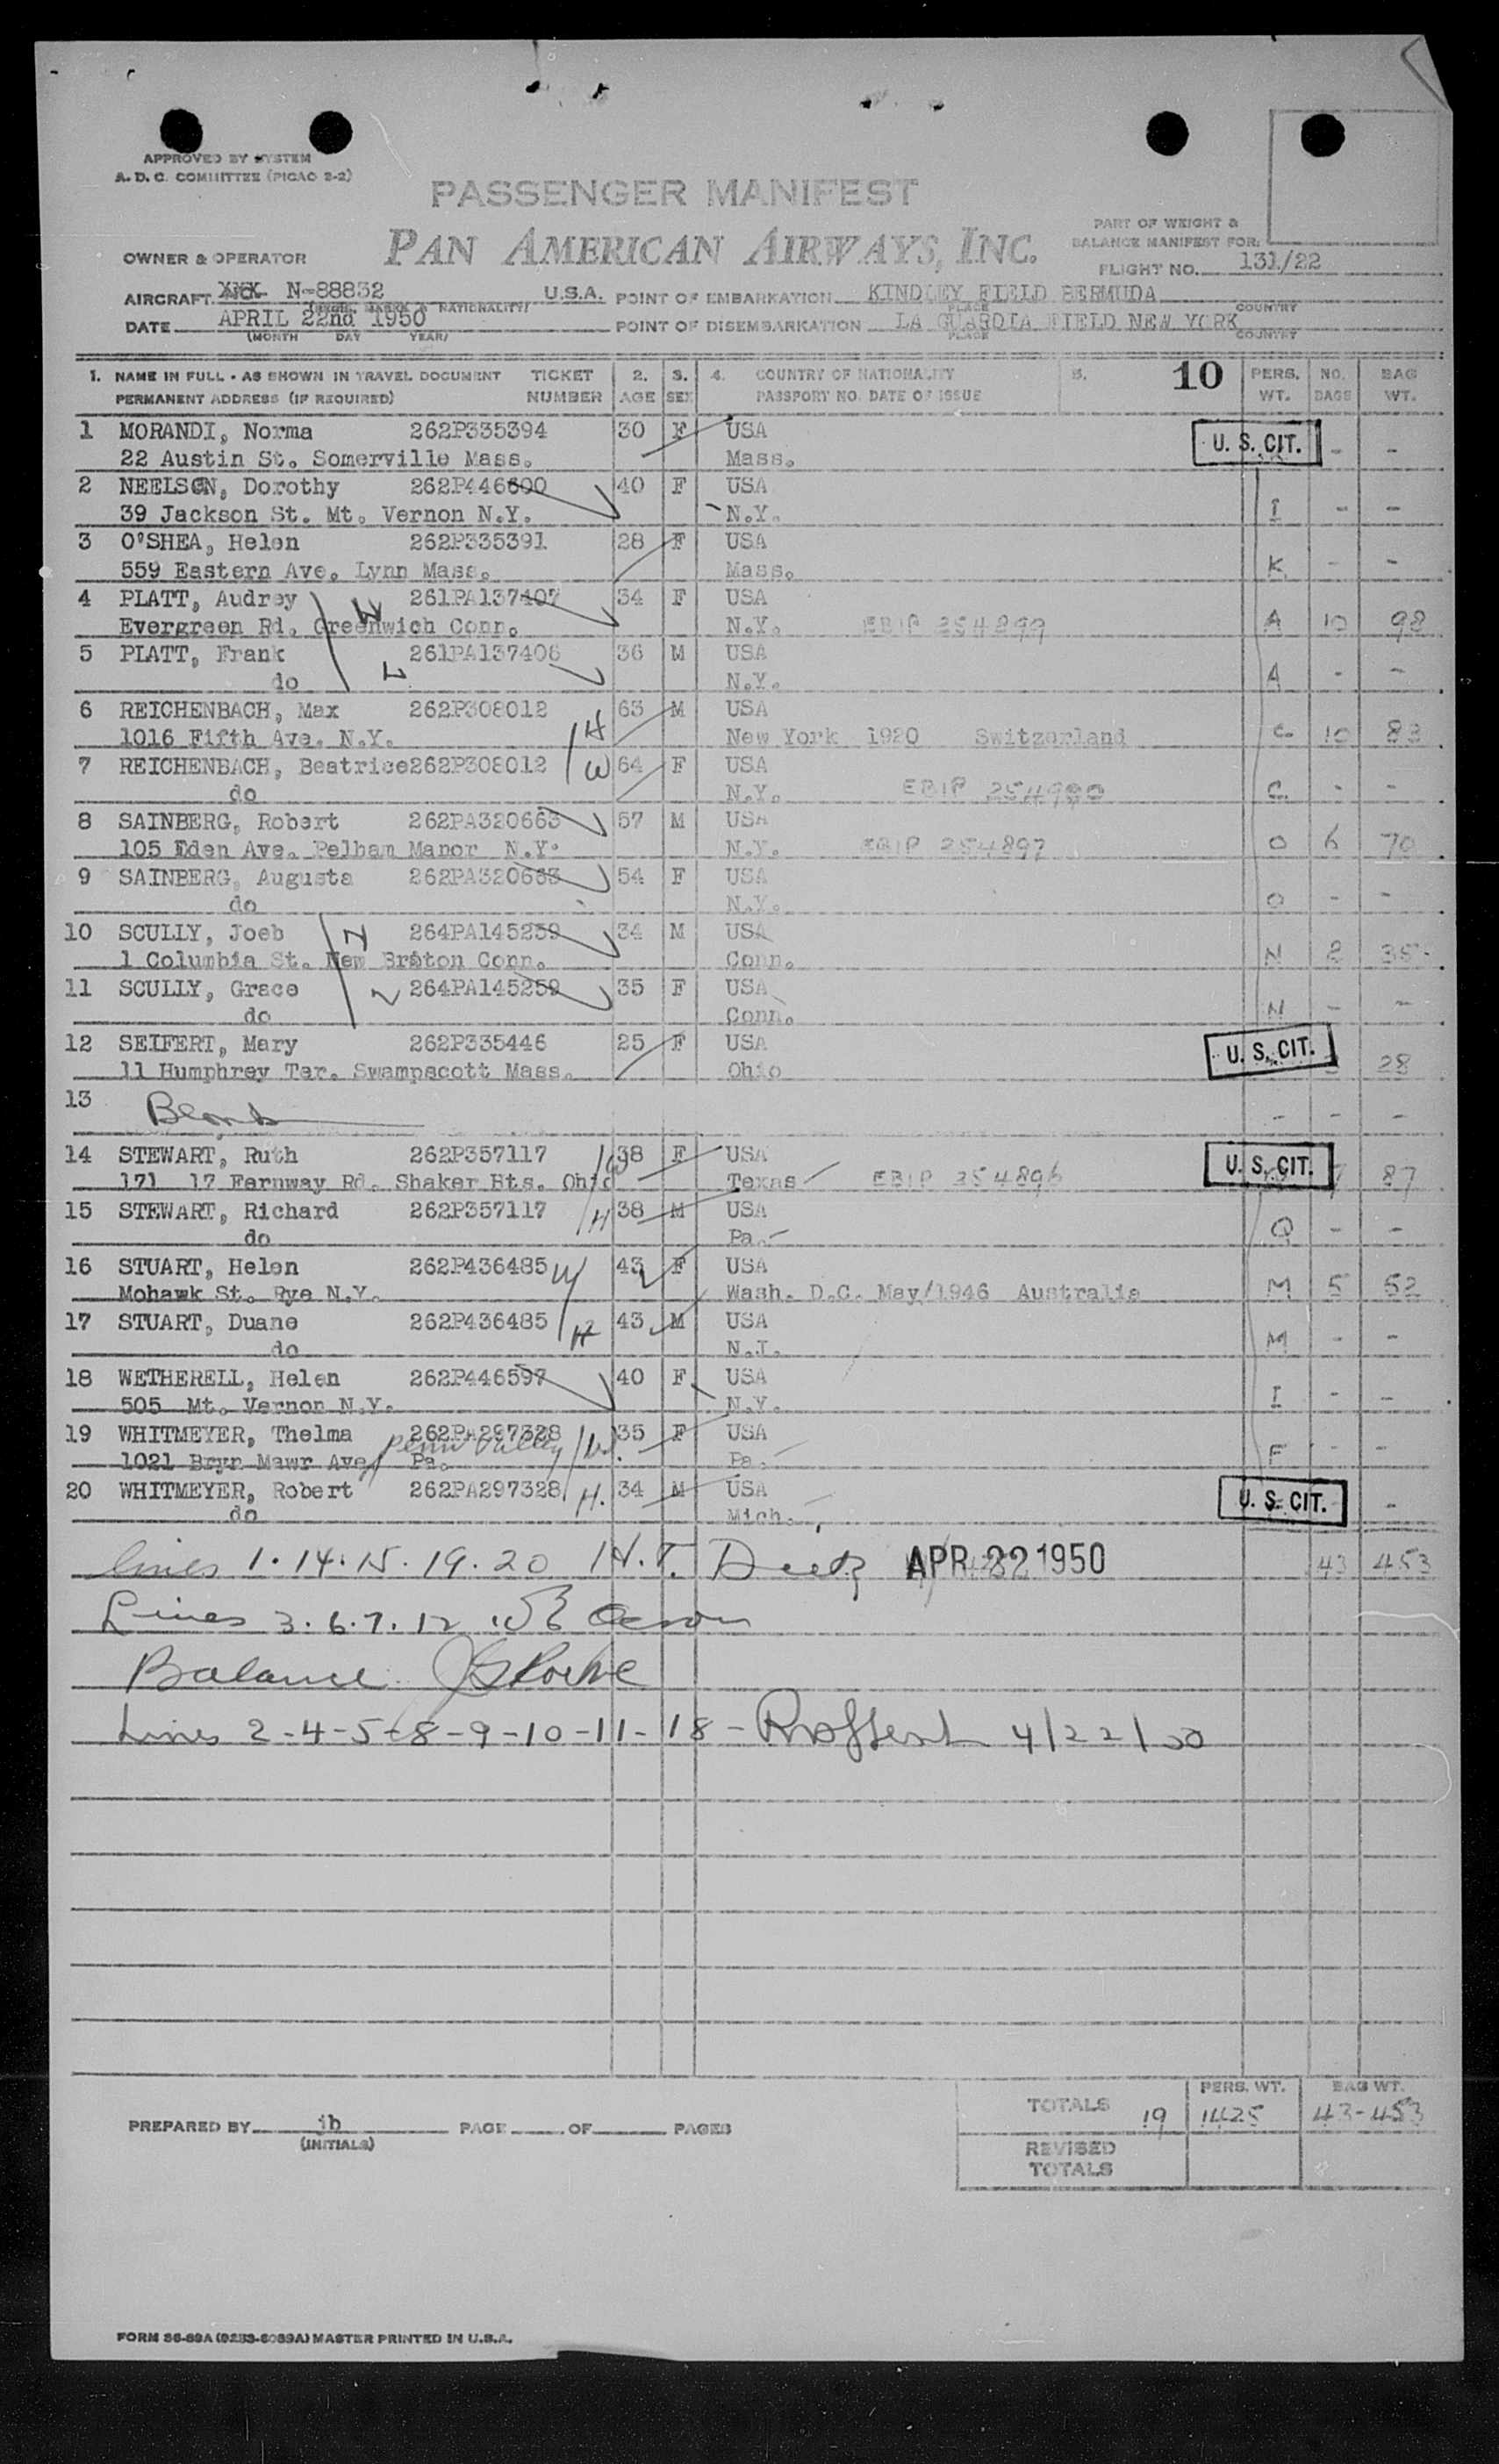 APPROVED BY SYSTEM
A. D. C. COMMITTEE (PICAO 2-2)
PASSENGER MANIFEST
PAN AMERICAN AIRWAYS, INC.
OWNER & OPERATOR
PART OF WEIGHT &
BALANCE MANIFEST FOR:
FLIGHT NO. 131/22
AIRCRAFT N-88832 U.S.A. POINT OF EMBARKATION KINDLEY FIELD BERMUDA
MARKS & NATIONALITY) PLACE COUNTRY
DATE APRIL 22nd 1950 POINT OF DISEMBARKATION LA GUARDIA FIELD NEW YORK
(MONTH DAY YEAR) PLACE COUNTRY
1. NAME IN FULL - AS SHOWN IN TRAVEL DOCUMENT TICKET 2. 3. 4. COUNTRY OF NATIONALITY 5. 10 PERS. NO. BAG
PERMANENT ADDRESS (IF REQUIRED) NUMBER AGE SEX PASSPORT NO. DATE OF ISSUE WT. BAGS WT.
1 MORANDI, Norma 262P335394 30 F USA U. S. CIT. - -
22 Austin St. Somerville Mass. Mass.
2 NEELSON, Dorothy 262P446600 40 F USA
39 Jackson St. Mt. Vernon N.Y. N.Y. I - -
3 O'SHEA, Helen 262P335391 28 F USA
559 Eastern Ave. Lynn Mass. Mass. K - -
4 PLATT, Audrey W 261PA137407 34 F USA
Evergreen Rd. Greenwich Conn. N.Y. EBIP 254899 A 10 98
5 PLATT, Frank 261PA137406 36 M USA
do N.Y. A - -
6 REICHENBACH, Max 262P308012 H 63 M USA
1016 Fifth Ave. N.Y. New York 1920 Switzerland C 10 83
7 REICHENBACH, Beatrice 262P308012 W 64 F USA
do N.Y. EBIP 254900 C - -
8 SAINBERG, Robert 262PA320663 57 M USA
105 Eden Ave. Pelham Manor N.Y. N.Y. EBIP 254897 O 6 70
9 SAINBERG, Augusta 262PA320663 54 F USA
do N.Y. O - -
10 SCULLY, Joeb 264PA145259 34 M USA
1 Columbia St. New Braton Conn. Conn. N 2 35
11 SCULLY, Grace 264PA145259 35 F USA
do Conn. N - -
12 SEIFERT, Mary 262P335446 25 F USA U. S. CIT.
11 Humphrey Ter. Swampscott Mass. Ohio 28
13 Blank - - -
14 STEWART, Ruth 262P357117 W 38 F USA U. S. CIT.
171 17 Fernway Rd. Shaker Hts. Ohio Texas EBIP 254896 7 87
15 STEWART, Richard 262P357117 H 38 M USA
do Pa. Q - -
16 STUART, Helen 262P436485 W 43 F USA
Mohawk St. Rye N.Y. Wash. D.C. May/1946 Australia M 5 52
17 STUART, Duane 262P436485 H 43 M USA
do N.J. M - -
18 WETHERELL, Helen 262P446597 40 F USA
505 Mt. Vernon N.Y. N.Y. I - -
19 WHITMEYER, Thelma 262PA297328 W. 35 F USA
1021 Bryn Mawr Ave, Penn Valley Pa. Pa. F - -
20 WHITMEYER, Robert 262PA297328 H. 34 M USA U. S. CIT. -
do Mich.
lines 1. 14. 15. 19. 20 H. T. APR 22 1950 43 453
Lines 3. 6. 7. 12
Balance
Lines 2-4-5-8-9-10-11-18- 4/22/50
TOTALS 19 PERS. WT. 1425 BAG WT. 43-453
PREPARED BY jb PAGE OF PAGES
(INITIALS)
REVISED
TOTALS
FORM 36-89A (9283-6089A) MASTER PRINTED IN U.S.A.